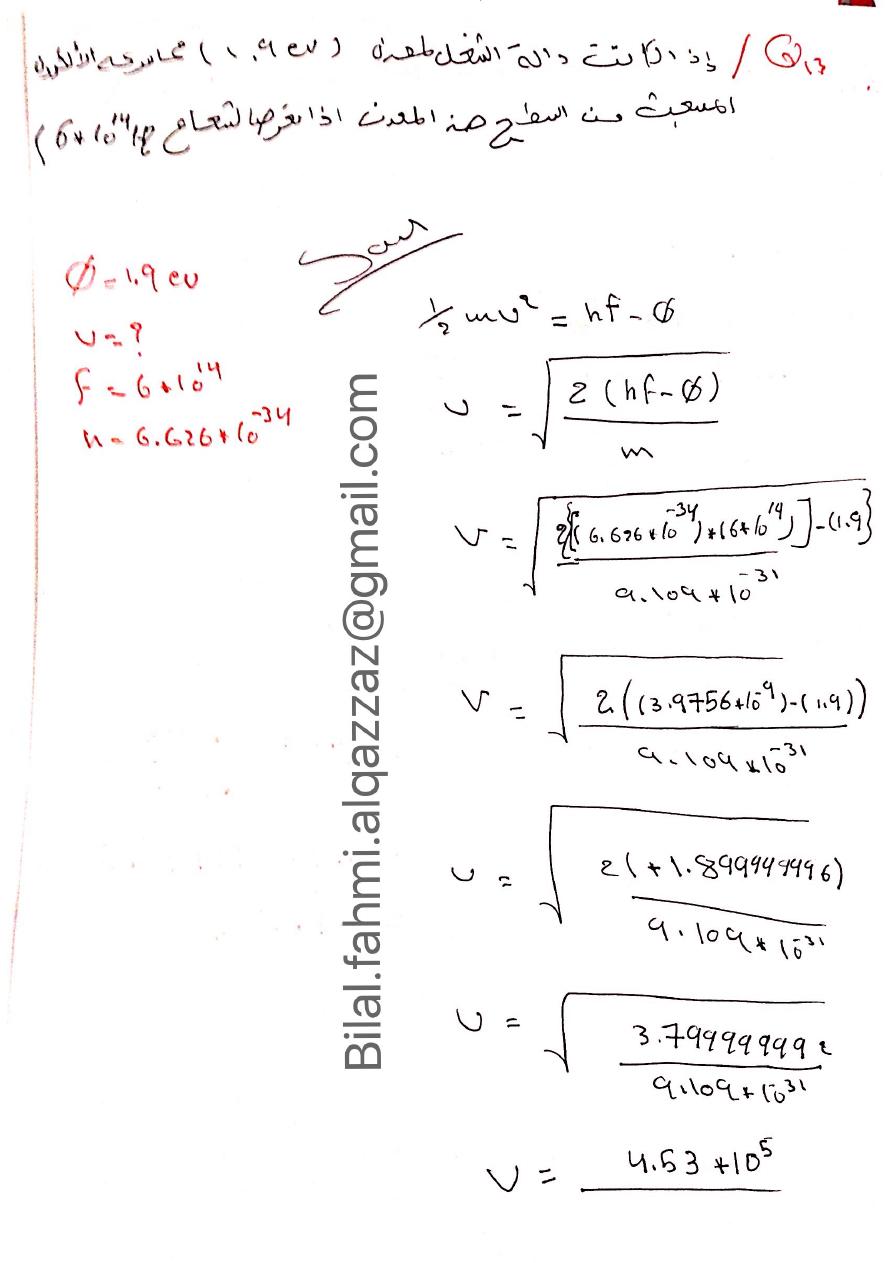 Q13 / إذا كانت دالة الشغل لمعدن (1.9 ev) فما سرعة الألكترون
المنبعث من السطح هذا المعدن اذا تعرض لشعاع (6*10^14 Hz)
Sol
Ø = 1.9 ev
υ = ?
f = 6*10^14
h = 6.626*10^-34
½ mυ² = hf - Ø
υ = √(2 (hf - Ø) / m)
υ = √(2{[(6.626*10^-34)*(6*10^14)] - (1.9} / 9.109*10^-31)
υ = √(2((3.9756*10^-9) - (1.9)) / 9.109*10^-31)
υ = √(2(+1.899999996) / 9.109*10^-31)
υ = √(3.799999992 / 9.109*10^-31)
υ = 4.53*10^5
Bilal.fahmi.alqazzaz@gmail.com